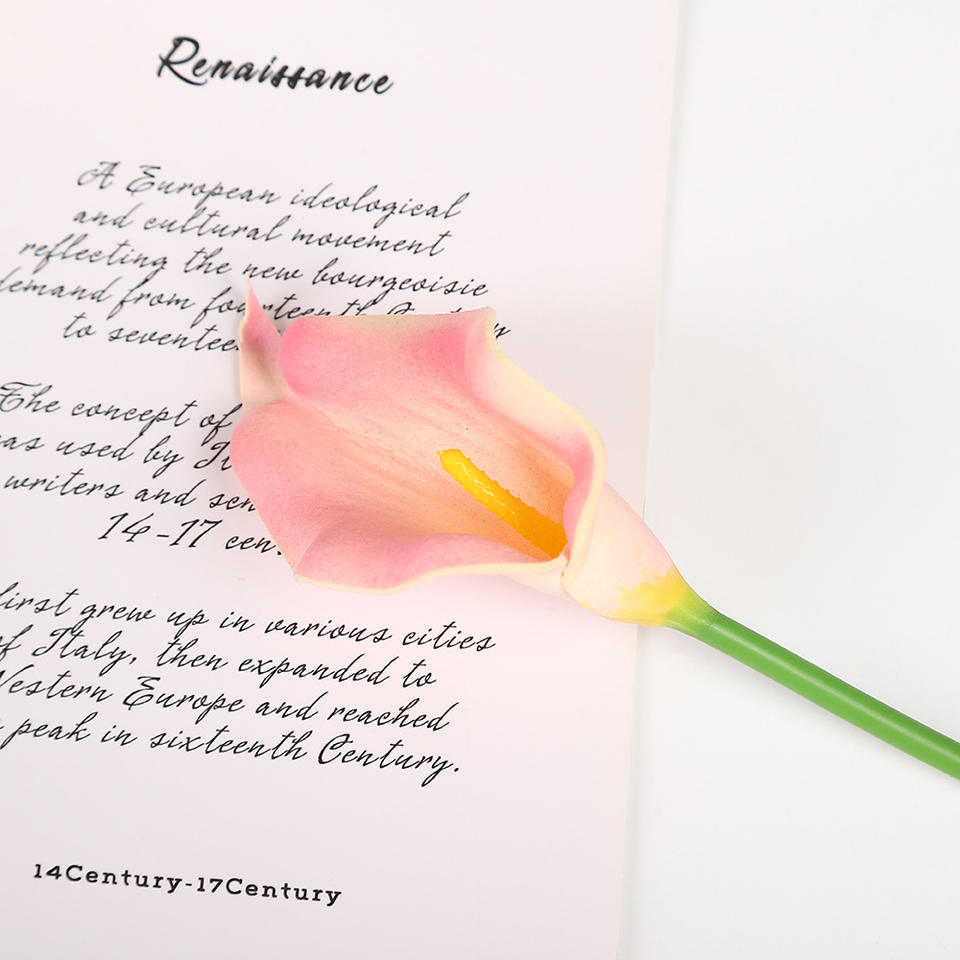 Renaissance
A European ideological
and cultural movement
reflecting the new bourgeoisie
demand from fourteenth
to
The concept of
used by
writers and
14-17
first grew up in various cities
of Italy, then expanded to
Western Europe and reached
peak in sixteenth Century.
14Century-17Century